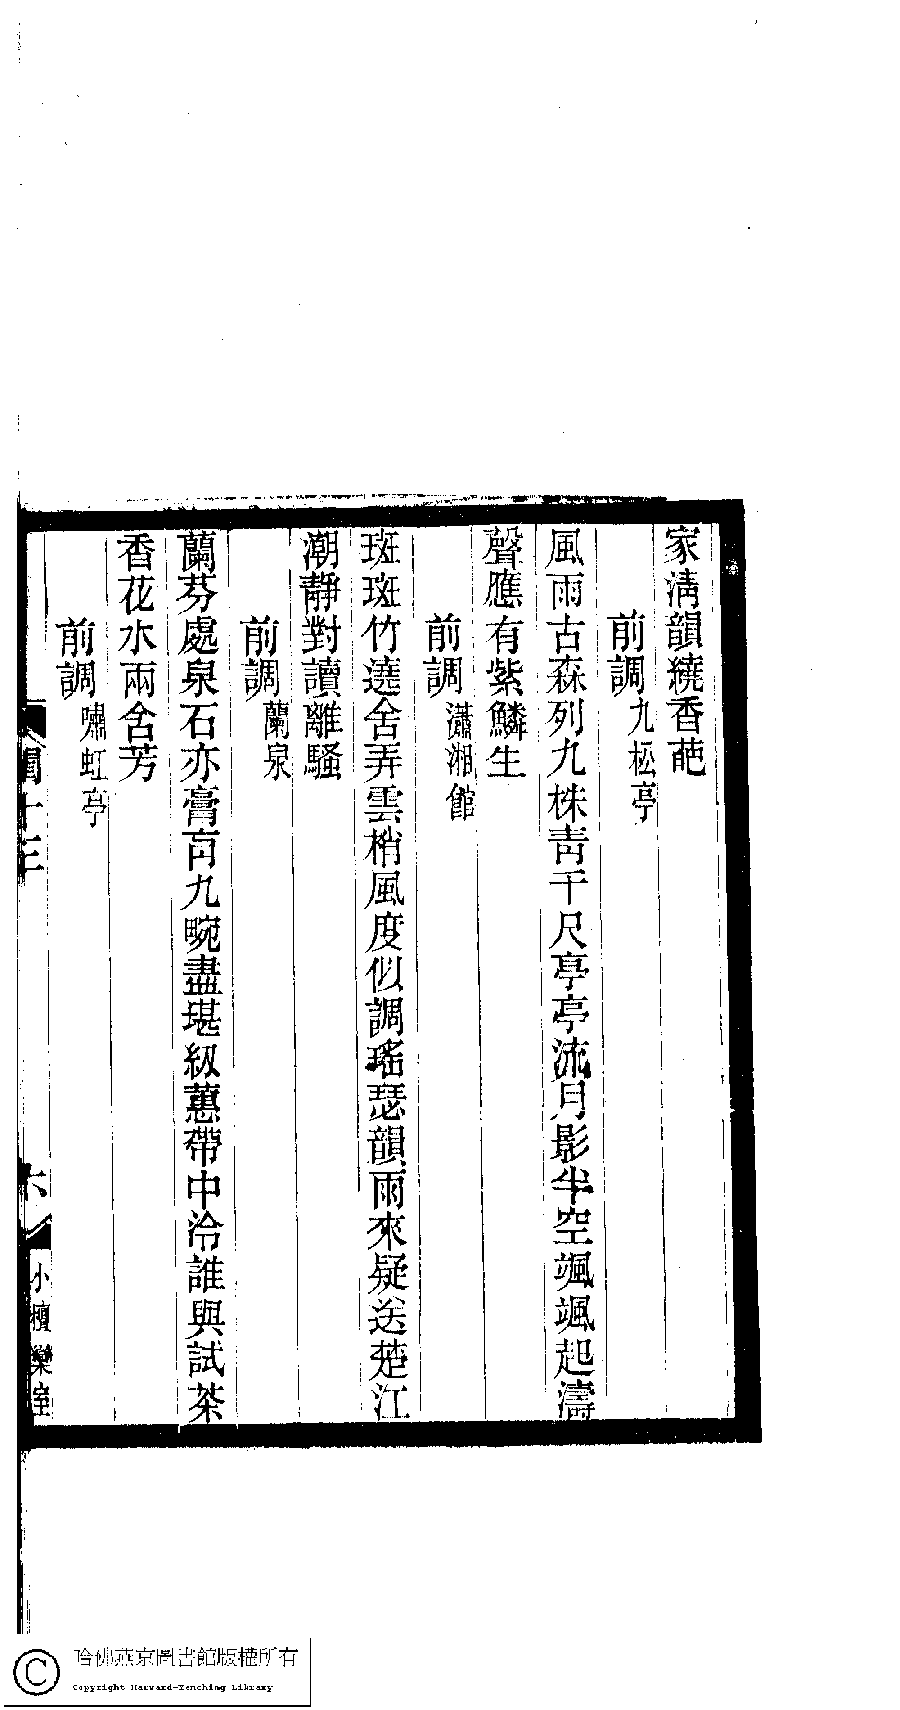 家淸韻繞香葩
前調九松亭
風雨古森列九株靑千尺亭亭流月影半空颯颯起濤
聲應有紫鱗生
前調瀟湘館
斑斑竹遶舍弄雲梢風度似調瑤瑟韻雨來疑送楚江
潮靜對讀離騷
前調蘭泉
蘭芬處泉石亦膏肓九畹盡堪紉蕙帶中泠誰與試茶
香花水兩含芳
前調嘯虹亭
十三
六
小檀欒室
哈佛燕京圖書館版權所有
Copyright Harvard-Yenching Library